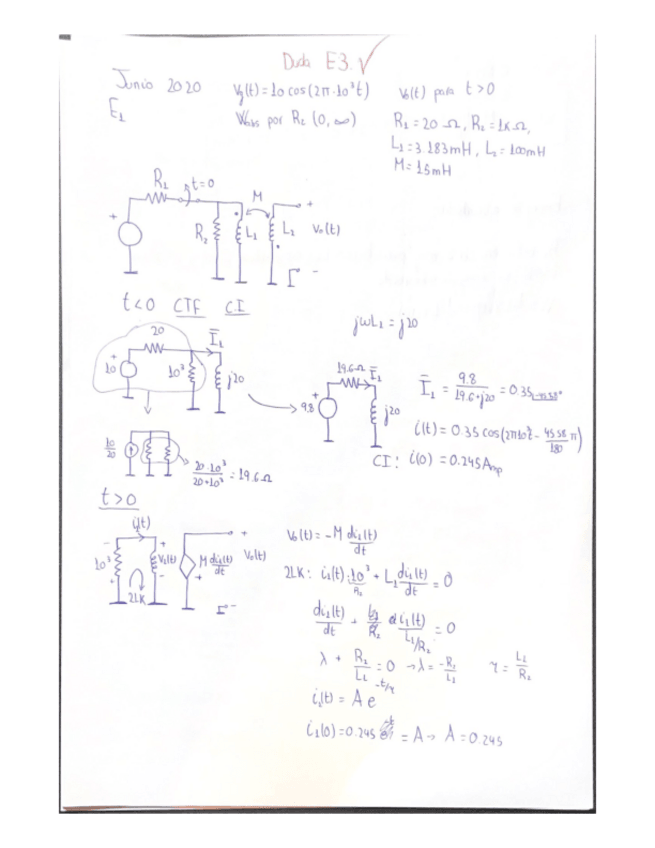 Duda E3.√
Junio 2020
E₁
Vg(t) = 10 cos(2π·10³t)
Wabs por R₂ (0, ∞)
V₀(t) para t>0
R₁ = 20 Ω, R₂ = 1KΩ,
L₁ = 3.183mH, L₂ = 100mH
M = 15mH
R₁ t=0
M
+
R₂ L₁ L₂ V₀(t)
+
-
t<0 CTF CI
jωL₁ = j20
20 I̅₁
10 + 10³ j20
19.6Ω I̅₁
+
9.8 j20
I̅₁ = 9.8 / 19.6+j20 = 0.35
i(t) = 0.35 cos(2π10³t - 45.58/180 π)
CI: i(0) = 0.245Amp
10/20
20·10³ / 20+10³ = 19.6Ω
t>0
i₁(t)
- + +
10³ V₁(t) M di₁(t)/dt V₀(t)
+ - + -
2LK
V₀(t) = -M di₁(t)/dt
2LK: i₁(t)·10³ + L₁ di₁(t)/dt = 0
R₂
di₁(t)/dt + = 0
L₁/R₂
λ + R₂/L₁ = 0 → λ = -R₂/L₁ τ = L₁/R₂
i₁(t) = A e^-t/τ
i₁(0) = 0.245 = A → A = 0.245